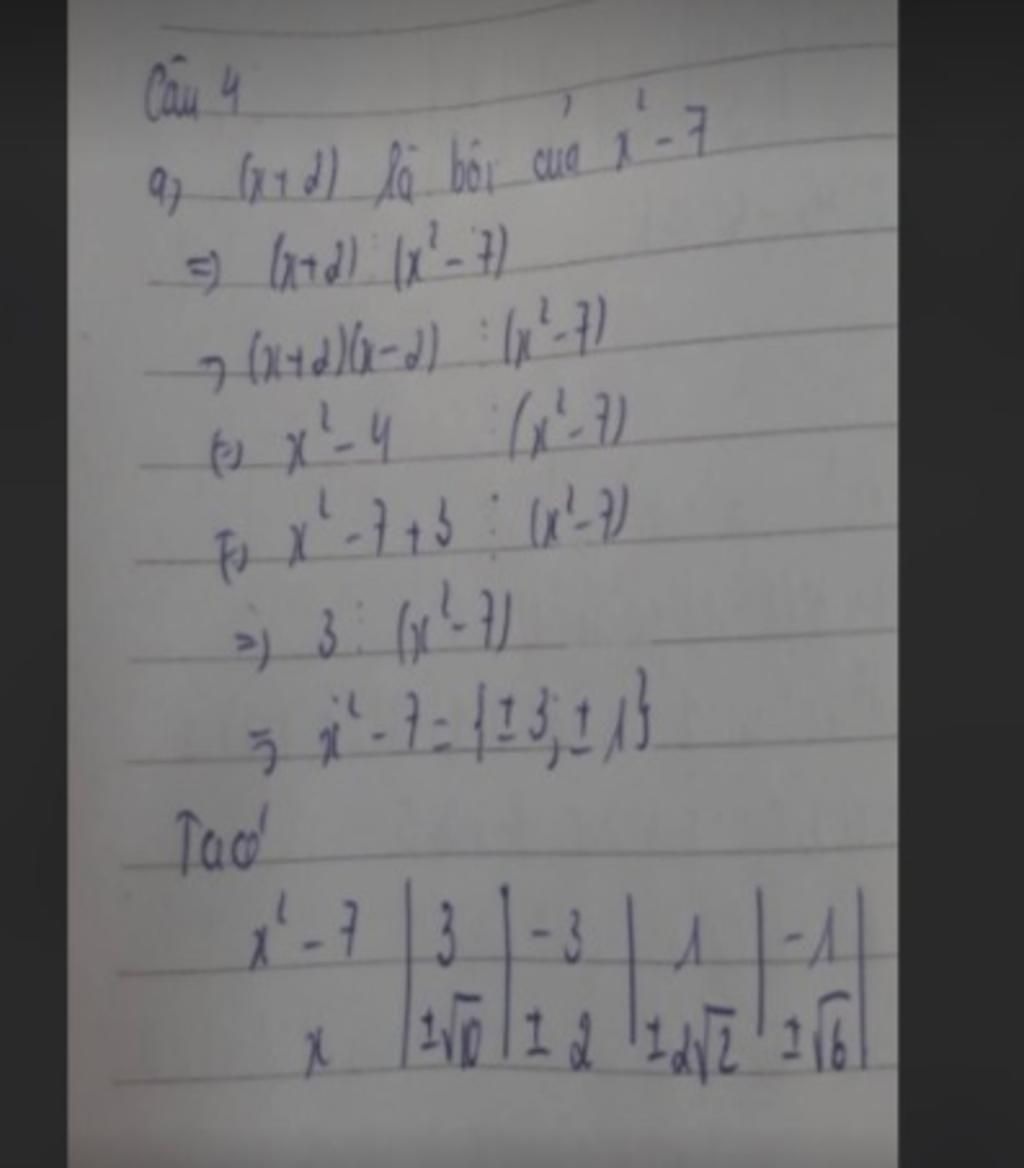 Câu 4
a, (x+2) là bội của x² - 7
=> (x+2) ⋮ (x² - 7)
=> (x+2)(x-2) ⋮ (x² - 7)
<=> x² - 4 ⋮ (x² - 7)
<=> x² - 7 + 3 ⋮ (x² - 7)
=> 3 ⋮ (x² - 7)
=> x² - 7 = {±3; ±1}
Ta có
x² - 7 | 3 | -3 | 1 | -1 |
x | ±√10 | ±2 | ±2√2 | ±√6 |